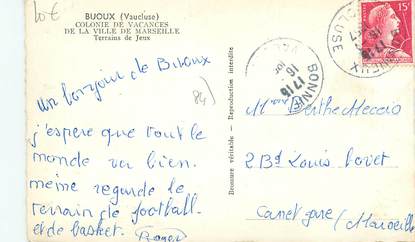 10€
BUOUX (Vaucluse)
COLONIE DE VACANCES
DE LA VILLE DE MARSEILLE
Terrains de Jeux
un bonjour de Buoux
84
j'espère que tout le
monde va bien.
meme regarde le
terrain de football
et de basket. Roger
Bromure véritable - Reproduction interdite
BONNIEUX
17 18
16
15F
VAUCLUSE
Berthe
2 Bd Louis
Canet gare (Marseille